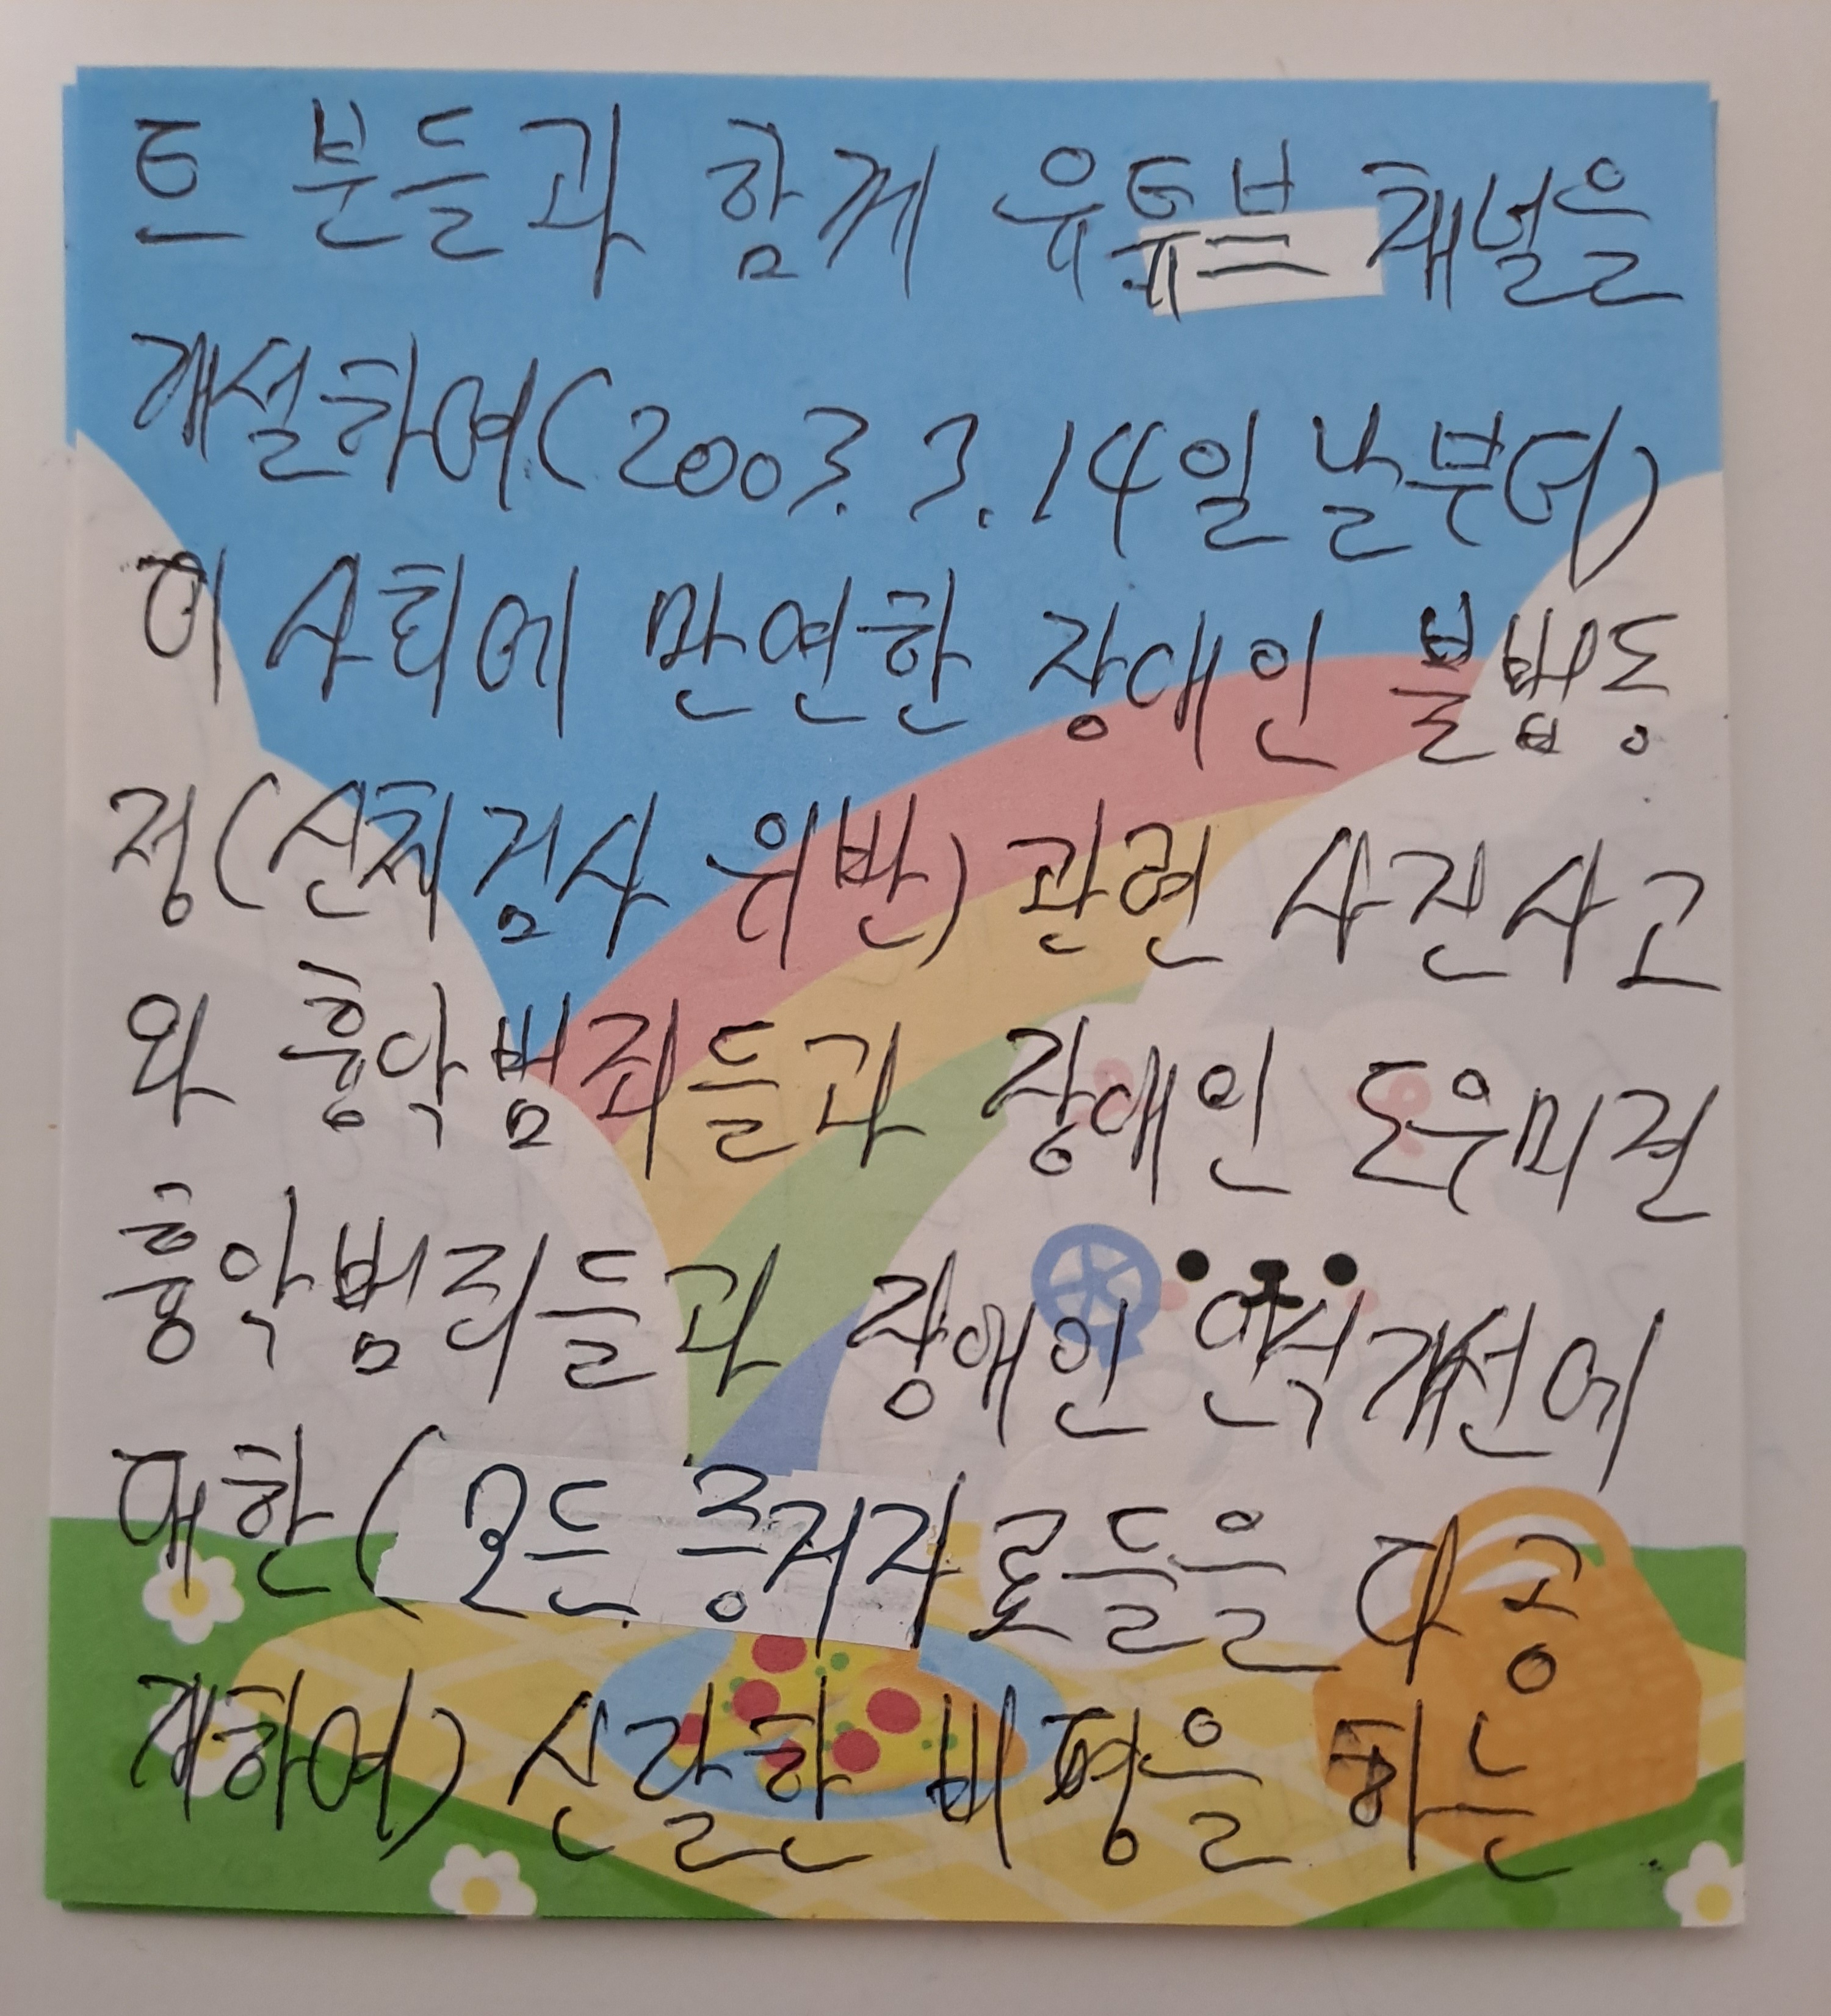 트 분들과 함께 유튜브 채널을
개설하여(2003. 3. 14일 날부터)
이 사회에 만연한 장애인 불법등
정(신체검사 위반) 관련 사건사고
와 흉악범죄들과 장애인 도우미견
흉악범죄들과 장애인 인식개선에
대한(모든 증거자료들을 다 공
개하여) 신랄한 비평을 하는